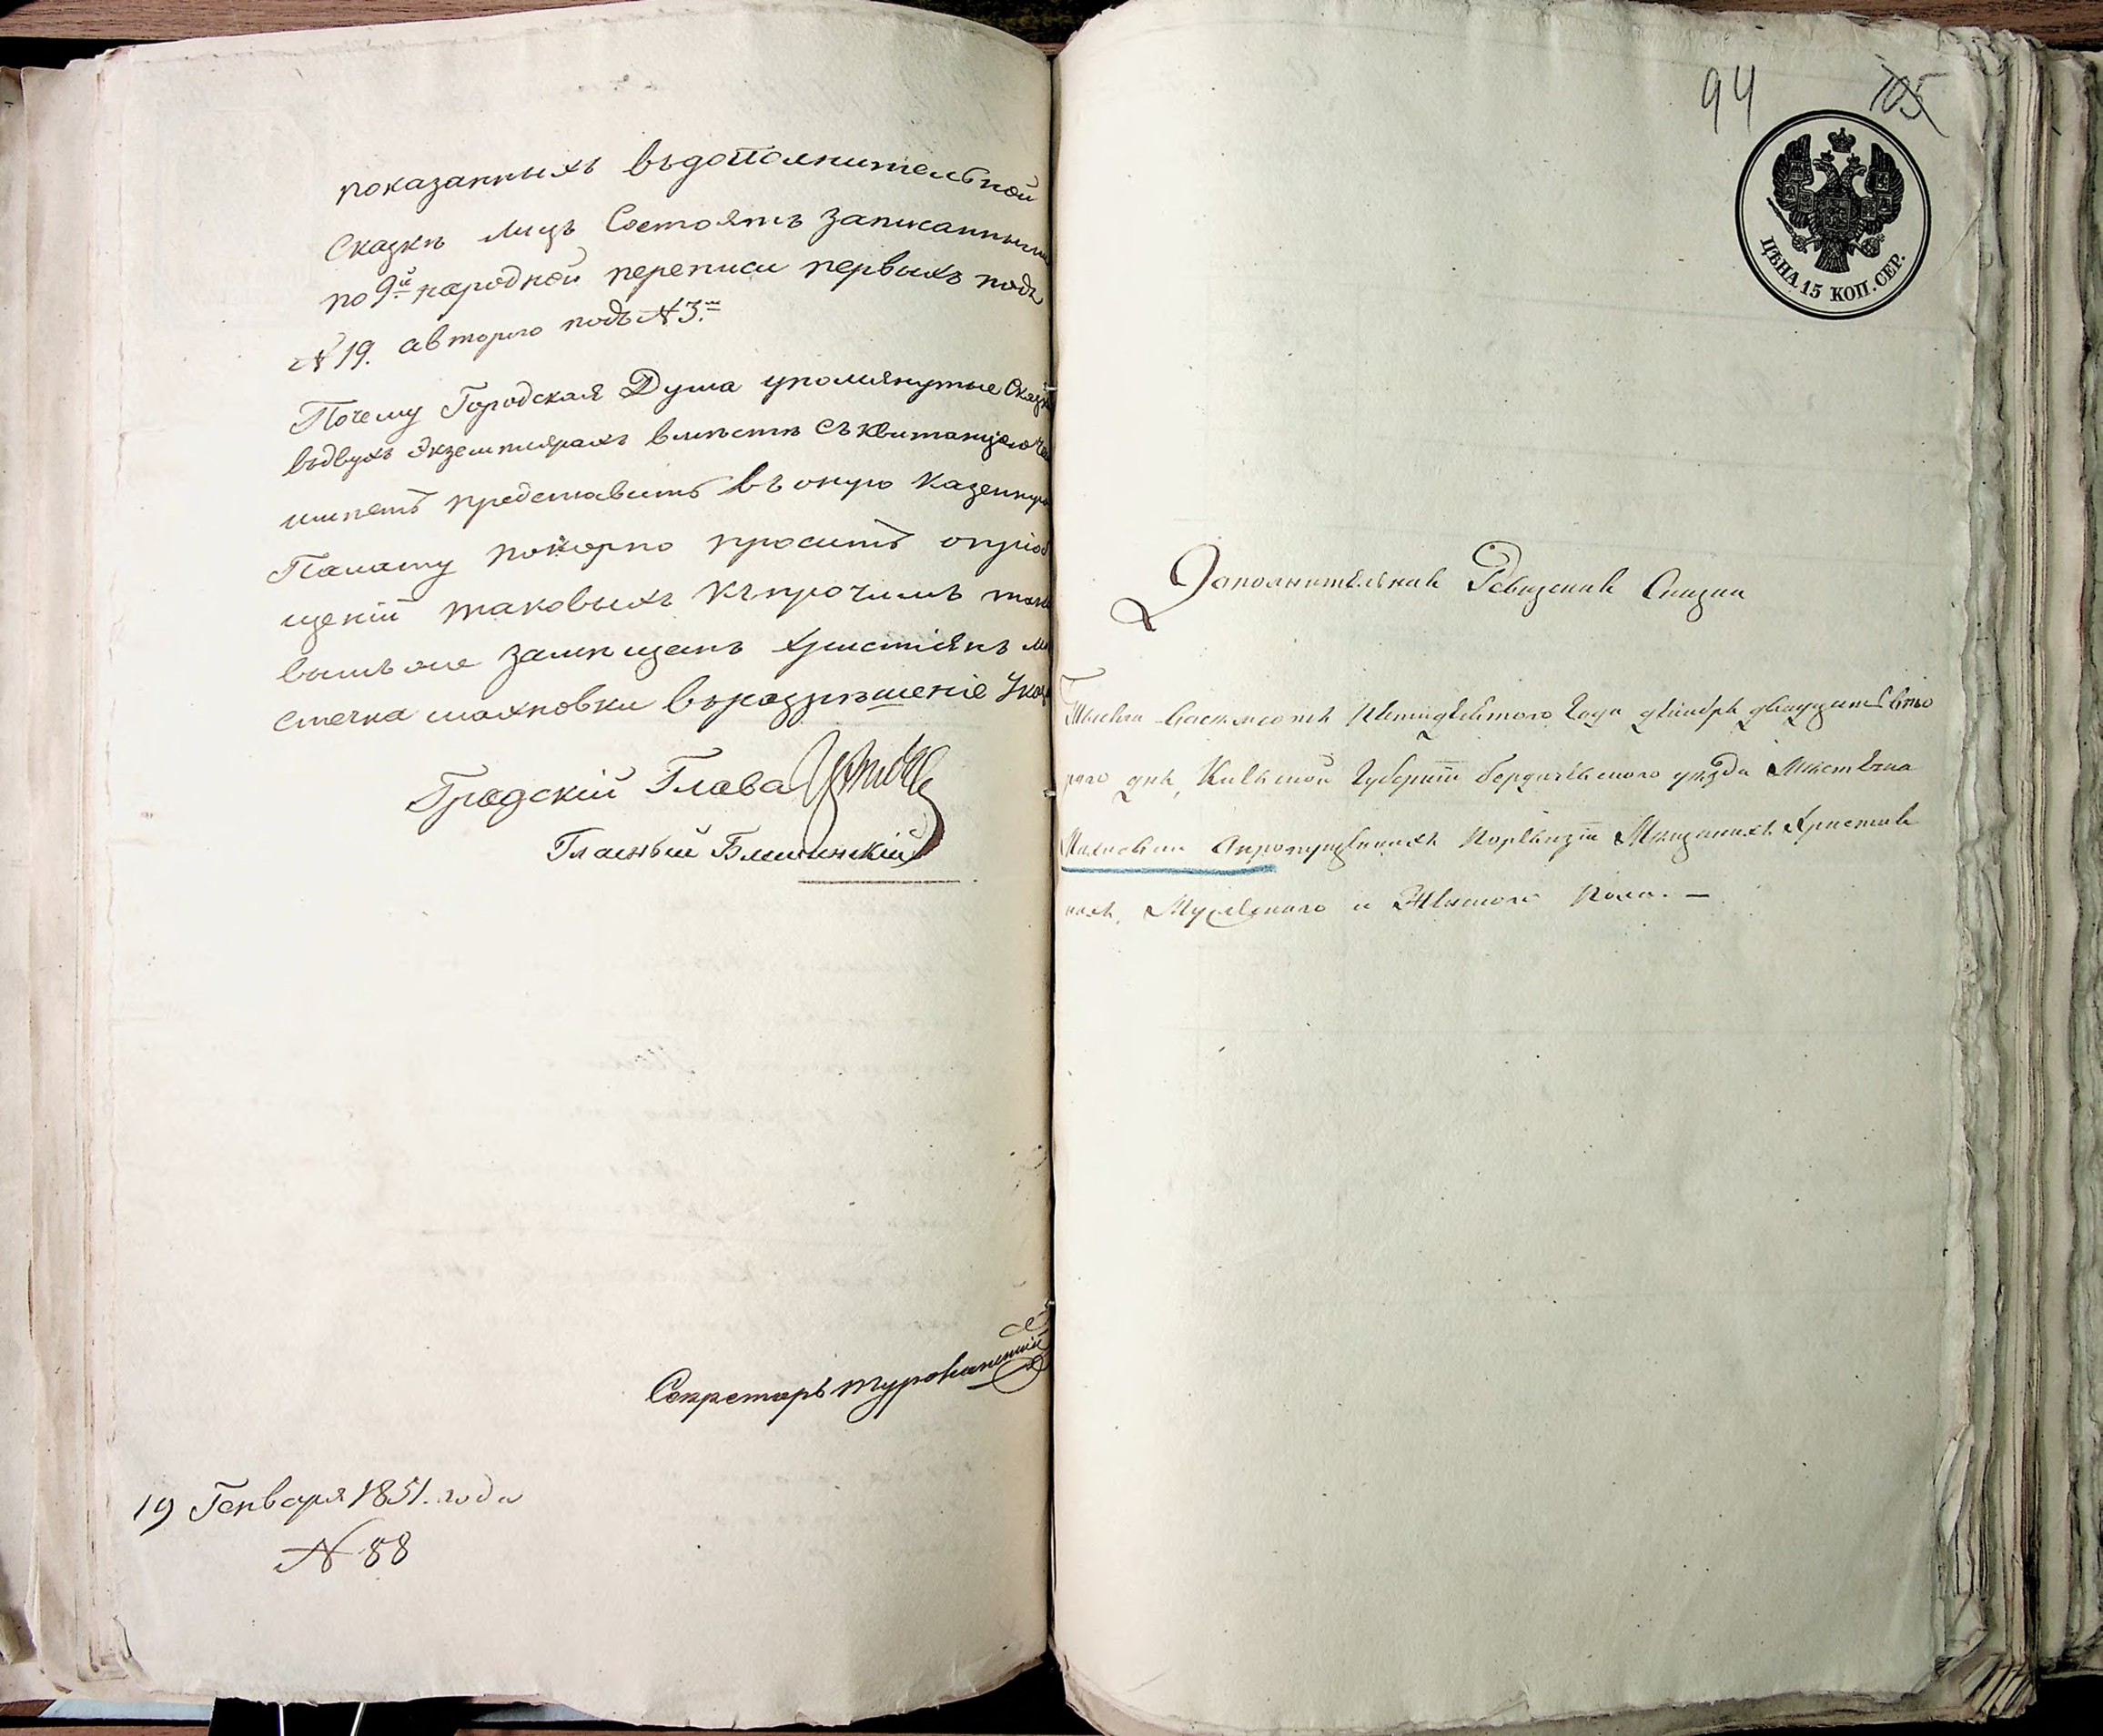 показанныхъ въ дополнительной
Сказкѣ лицъ Состоятъ записанными
по 9й народной переписи первыхъ подъ
№ 19. а втораго подъ № 3.м
Почему Городская Дума упомянутые Сказк
въ двухъ Экземплярахъ вмѣстѣ съ квитанціею че
имѣетъ представить въ оную Казенную
Палату покорно проситъ о пріоб
щеніи таковыхъ къ прочимъ тако
вымъ же замѣщанъ Христіянъ м
стечка Махновки въ разрѣшеніе Указ
Градскій Глава
Гласный
Секретарь
19 Генваря 1851. года
№ 88
94
105
ЦѢНА 15 КОП. СЕР.
Дополнительная Ревизская Сказка
Тысяча восемьсотъ Пятидесятого Года декабря двадцать вто
раго дня, Кіевской Губерніи Бердичевского уѣзда Мѣстечка
Махновки О пропущенныхъ По ревизіи Мѣщанахъ Христiа
нахъ, Мужескаго и Женского Пола. —